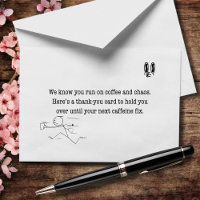 We know you run on coffee and chaos.
Here's a thank-you card to hold you
over until your next caffeine fix.